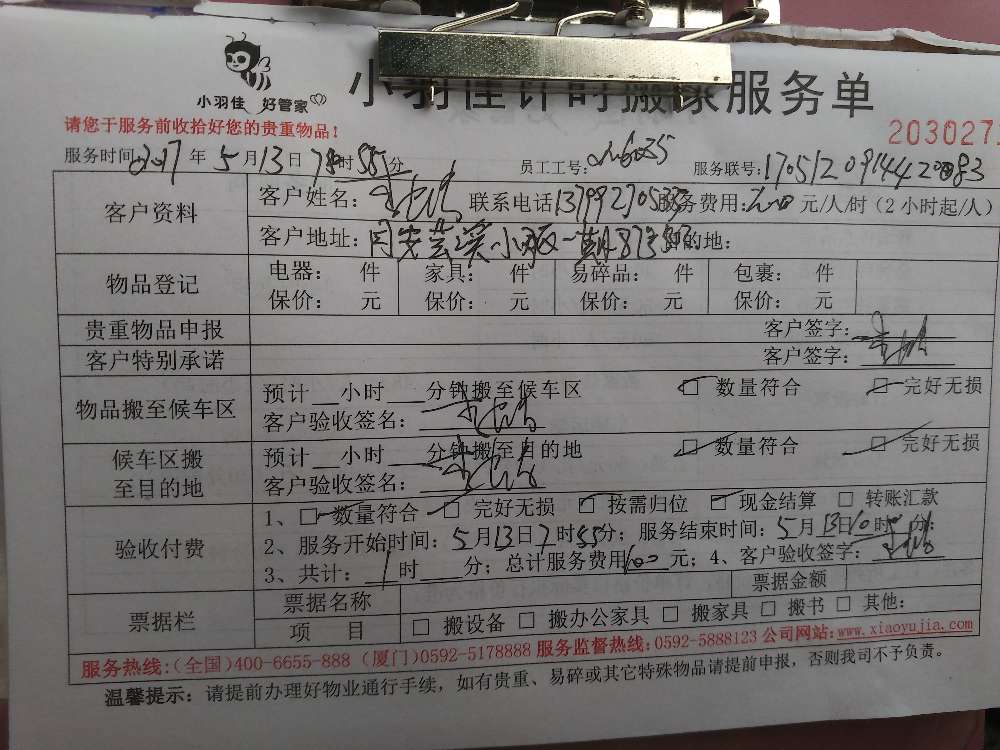 小羽佳 好管家
小羽佳计时搬家服务单
请您于服务前收拾好您的贵重物品！
203027
服务时间 2017 年 5 月 13 日 7 时 55 分 员工工号： 服务联号：17051209144420083
客户资料 客户姓名： 联系电话 服务费用： 元/人/时（2小时起/人）
客户地址： 目的地：
物品登记 电器： 件 家具： 件 易碎品： 件 包裹： 件
保价： 元 保价： 元 保价： 元 保价： 元
贵重物品申报 客户签字：
客户特别承诺 客户签字：
物品搬至候车区 预计__小时___分钟搬至候车区 □ 数量符合 □ 完好无损
客户验收签名：
候车区搬至目的地 预计__小时___分钟搬至目的地 □ 数量符合 □ 完好无损
客户验收签名：
验收付费 1、□ 数量符合 □ 完好无损 □ 按需归位 □ 现金结算 □ 转账汇款
2、服务开始时间：5月13日7时55分；服务结束时间：5月13日10时 分；
3、共计： 时___分；总计服务费用 元；4、客户验收签字：
票据栏 票据名称 票据金额
项 目 □ 搬设备 □ 搬办公家具 □ 搬家具 □ 搬书 □ 其他：
服务热线：（全国）400-6655-888（厦门）0592-5178888 服务监督热线：0592-5888123 公司网站：www.xiaoyujia.com
温馨提示：请提前办理好物业通行手续，如有贵重、易碎或其它特殊物品请提前申报，否则我司不予负责。